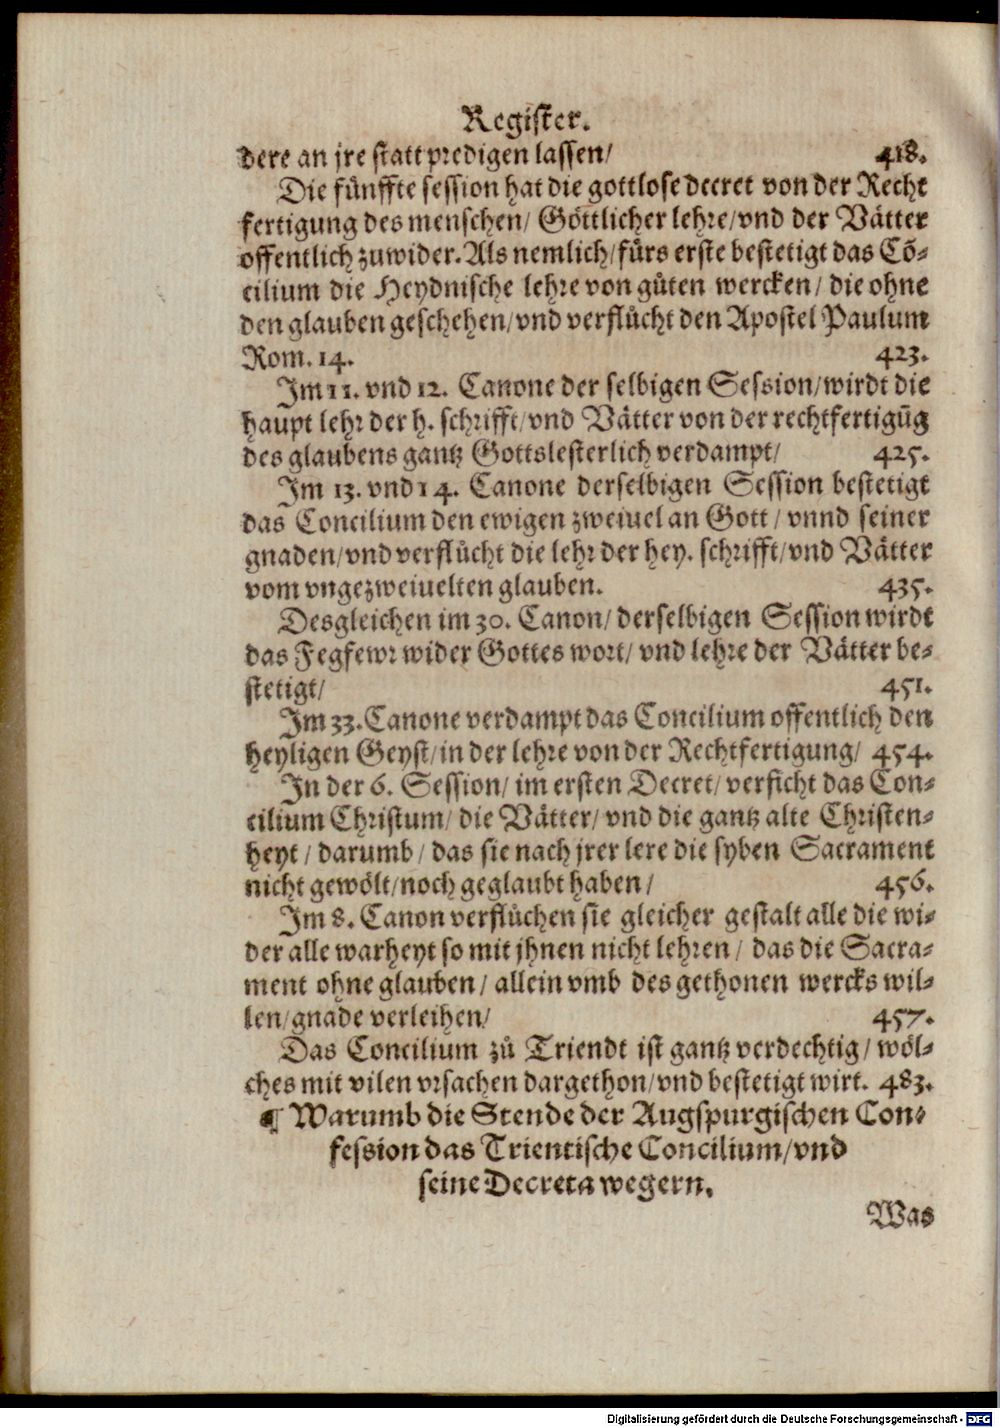 Register.
dere an jre statt predigen lassen/ 418.
Die fünffte session hat die gottlose decret von der Recht
fertigung des menschen/ Göttlicher lehre/vnd der Vätter
offentlich zuwider. Als nemlich/fürs erste bestetigt das Cō-
cilium die Heydnische lehre von gůten wercken/ die ohne
den glauben geschehen/vnd verflůcht den Apostel Paulum
Rom. 14. 423.
Im 11. vnd 12. Canone der selbigen Session/wirdt die
haupt lehr der h. schrifft/vnd Vätter von der rechtfertigūg
des glaubens gantz Gottslesterlich verdampt/ 425.
Im 13. vnd 14. Canone derselbigen Session bestetigt
das Concilium den ewigen zweiuel an Gott/ vnnd seiner
gnaden/vnd verflůcht die lehr der hey. schrifft/vnd Vätter
vom vngezweiuelten glauben. 435.
Desgleichen im 30. Canon/ derselbigen Session wirdt
das Fegfewr wider Gottes wort/ vnd lehre der Vätter be-
stetigt/ 451.
Im 33. Canone verdampt das Concilium offentlich den
heyligen Geyst/in der lehre von der Rechtfertigung/ 454.
In der 6. Session/ im ersten Decret/ verficht das Con-
cilium Christum/ die Vätter/ vnd die gantz alte Christen-
heyt/ darumb/ das sie nach jrer lere die syben Sacrament
nicht gewölt/noch geglaubt haben/ 456.
Im 8. Canon verflůchen sie gleicher gestalt alle die wi-
der alle warheyt so mit jhnen nicht lehren/ das die Sacra-
ment ohne glauben/ allein vmb des gethonen wercks wil-
len/gnade verleihen/ 457.
Das Concilium zů Triendt ist gantz verdechtig/ wöl-
ches mit vilen vrsachen dargethon/vnd bestetigt wirt. 483.
¶ Warumb die Stende der Augspurgischen Con-
fession das Trientische Concilium/vnd
seine Decreta wegern.
Was
Digitalisierung gefördert durch die Deutsche Forschungsgemeinschaft - DFG